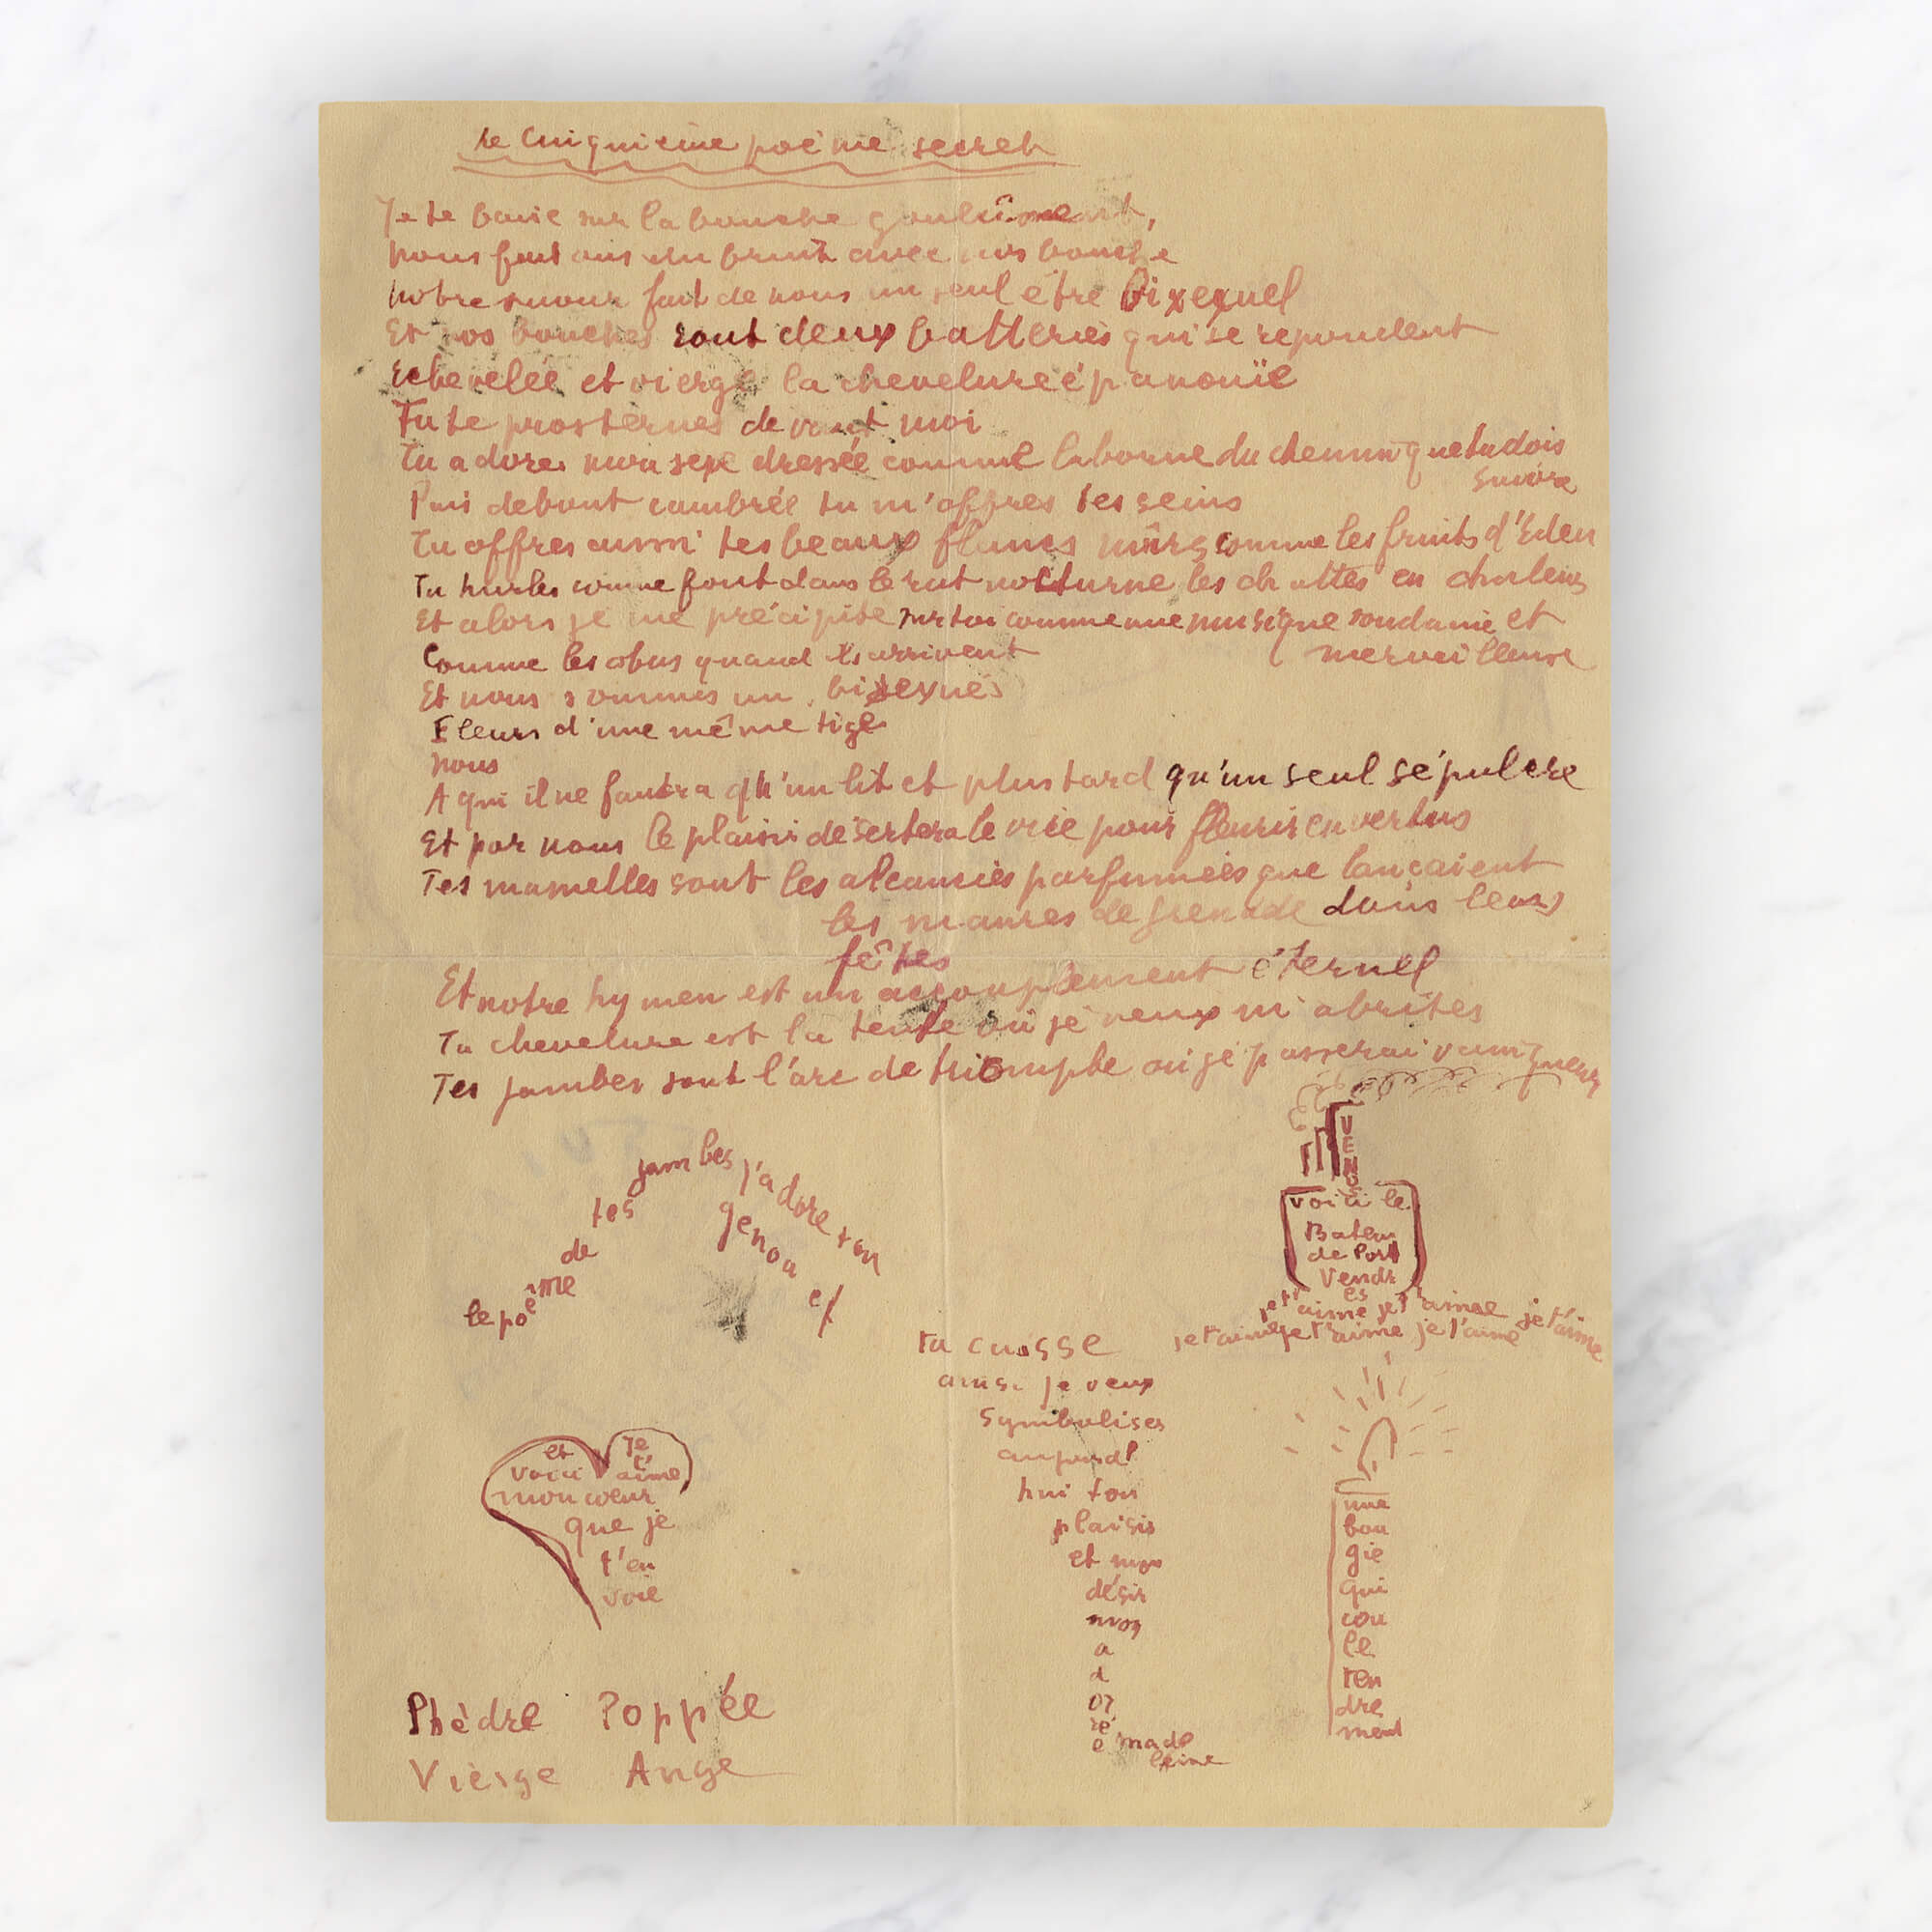 Le cinquième poème secret
Je te baise sur la bouche goulûment,
nous faisons du bruit avec nos bouche
notre amour fait de nous un seul être bixexuel
Et nos bouches sont deux batteries qui se repondent
Echevelée et vierge la chevelure épanouïe
Tu te prosternes devant moi
Tu adores mon sexe dressée comme la borne du chemin que tu dois
suivre
Puis debout cambrée tu m'offres tes seins
Tu offres aussi tes beaux flancs mûrs comme les fruits d'Eden
Tu hurles comme font dans le rut nocturne les chattes en chaleurs
Et alors je me précipite sur toi comme une musique soudaine et
merveilleuse
Comme les obus quand ils arrivent
Et nous sommes un bisexués
Fleurs d'une même tige
nous
A qui il ne faudra qu'un lit et plus tard qu'un seul sépulcre
Et par nous le plaisir désertera le vice pour fleurir en vertus
Tes mamelles sont les alcancies parfumées que lançaient
les maures de grenade dans leurs
fêtes
Et notre hymen est un accouplement éternel
Ta chevelure est la tente où je veux m'abriter
Tes jambes sont l'arc de triomphe où je passerai vainqueur
le poème de tes jambes j'adore ton
genou et
ta cuisse
ainsi je veux
symboliser
aujourd'
hui ton
plaisir
et mon
désir
mon
a
d
or
é
e made
leine
VENUS
voici le
Bateau
de Port
Vendr
es
je t'aime je t'aime je t'aime
je t'aime je t'aime je t'aime
et Je
voici t'aime
mon cœur
que je
t'en
voie
une
bou
gie
qui
cou
le
ten
dre
ment
Phèdre Poppée
Vierge Ange